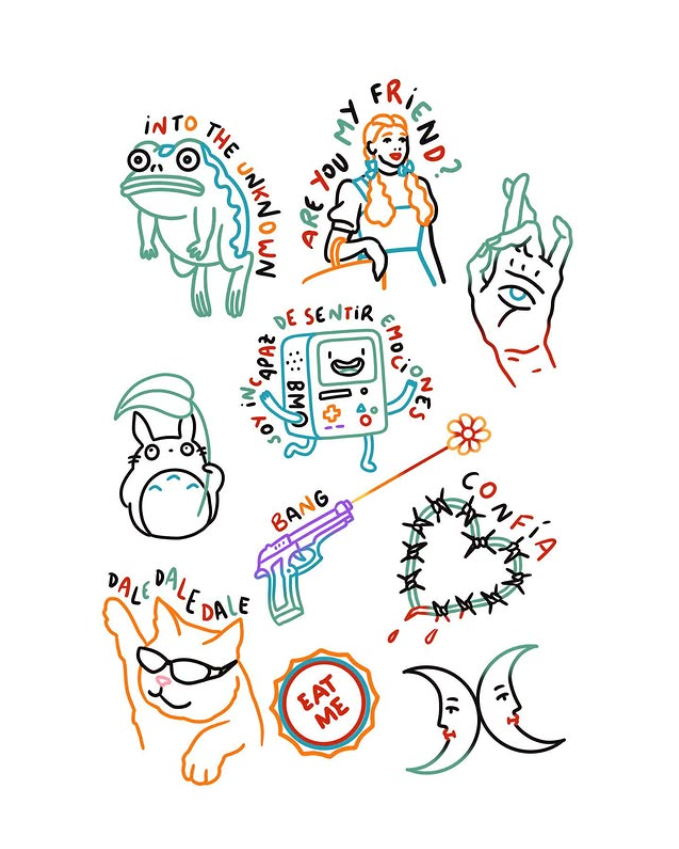 iNTO THE UNKNOWN
ARE YOU MY FRiEND?
SOY iNCAPAZ DE SENTiR EMOCiONES
BMO
BANG
CONFÍA
DALE DALE DALE
EAT
ME